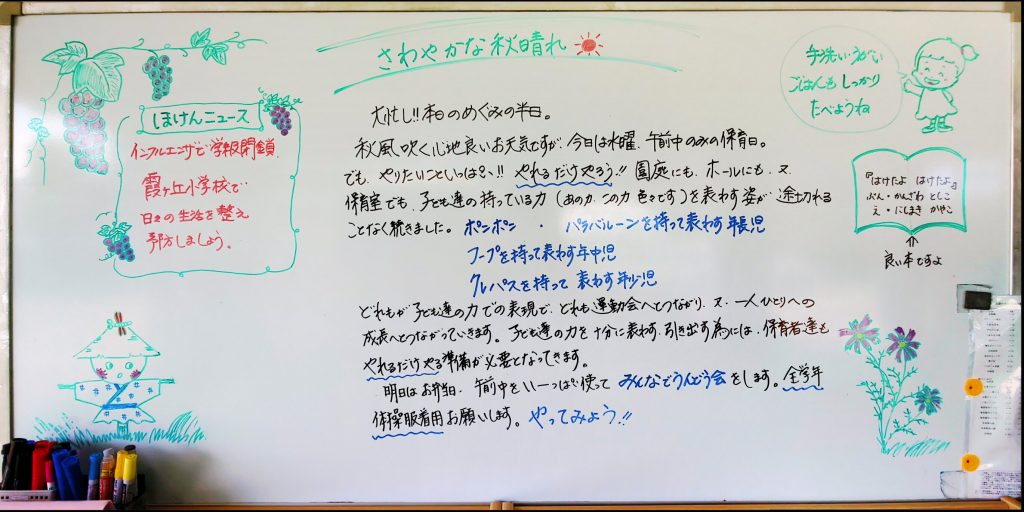 さわやかな秋晴れ
ほけんニュース
インフルエンザで学級閉鎖
霞ヶ丘小学校で
日々の生活を整え
予防しましょう。
手洗いうがい
ごはんも しっかり
たべようね
大忙し!!本日のめぐみの半日。
秋風吹く心地良いお天気ですが、今日は水曜、午前中のみの保育日。
でも、やりたいこといっぱ〜い!! やれるだけやろう!! 園庭にも、ホールにも、又、
保育室でも、子ども達の持っている力(あの力、この力 色々です)を表わす姿が 途切れる
ことなく続きました。 ポンポン ・ パラバルーンを持って表わす年長児
フープを持って表わす年中児
クレパスを持って 表わす年少児
どれもが子ども達の力での表現で、どれも運動会へとつながり、又、一人ひとりへの
成長へとつながっていきます。子ども達の力を十分に表わす、引き出す為には、保育者達も
やれるだけやる準備が必要となってきます。
明日はお弁当、午前中をいーっぱい使って みんなでうんどう会をします。全学年
体操服着用お願いします。やってみよう!!
『はけたよ はけたよ』
ぶん・かんざわ としこ
え・にしまき かやこ
良い本ですよ